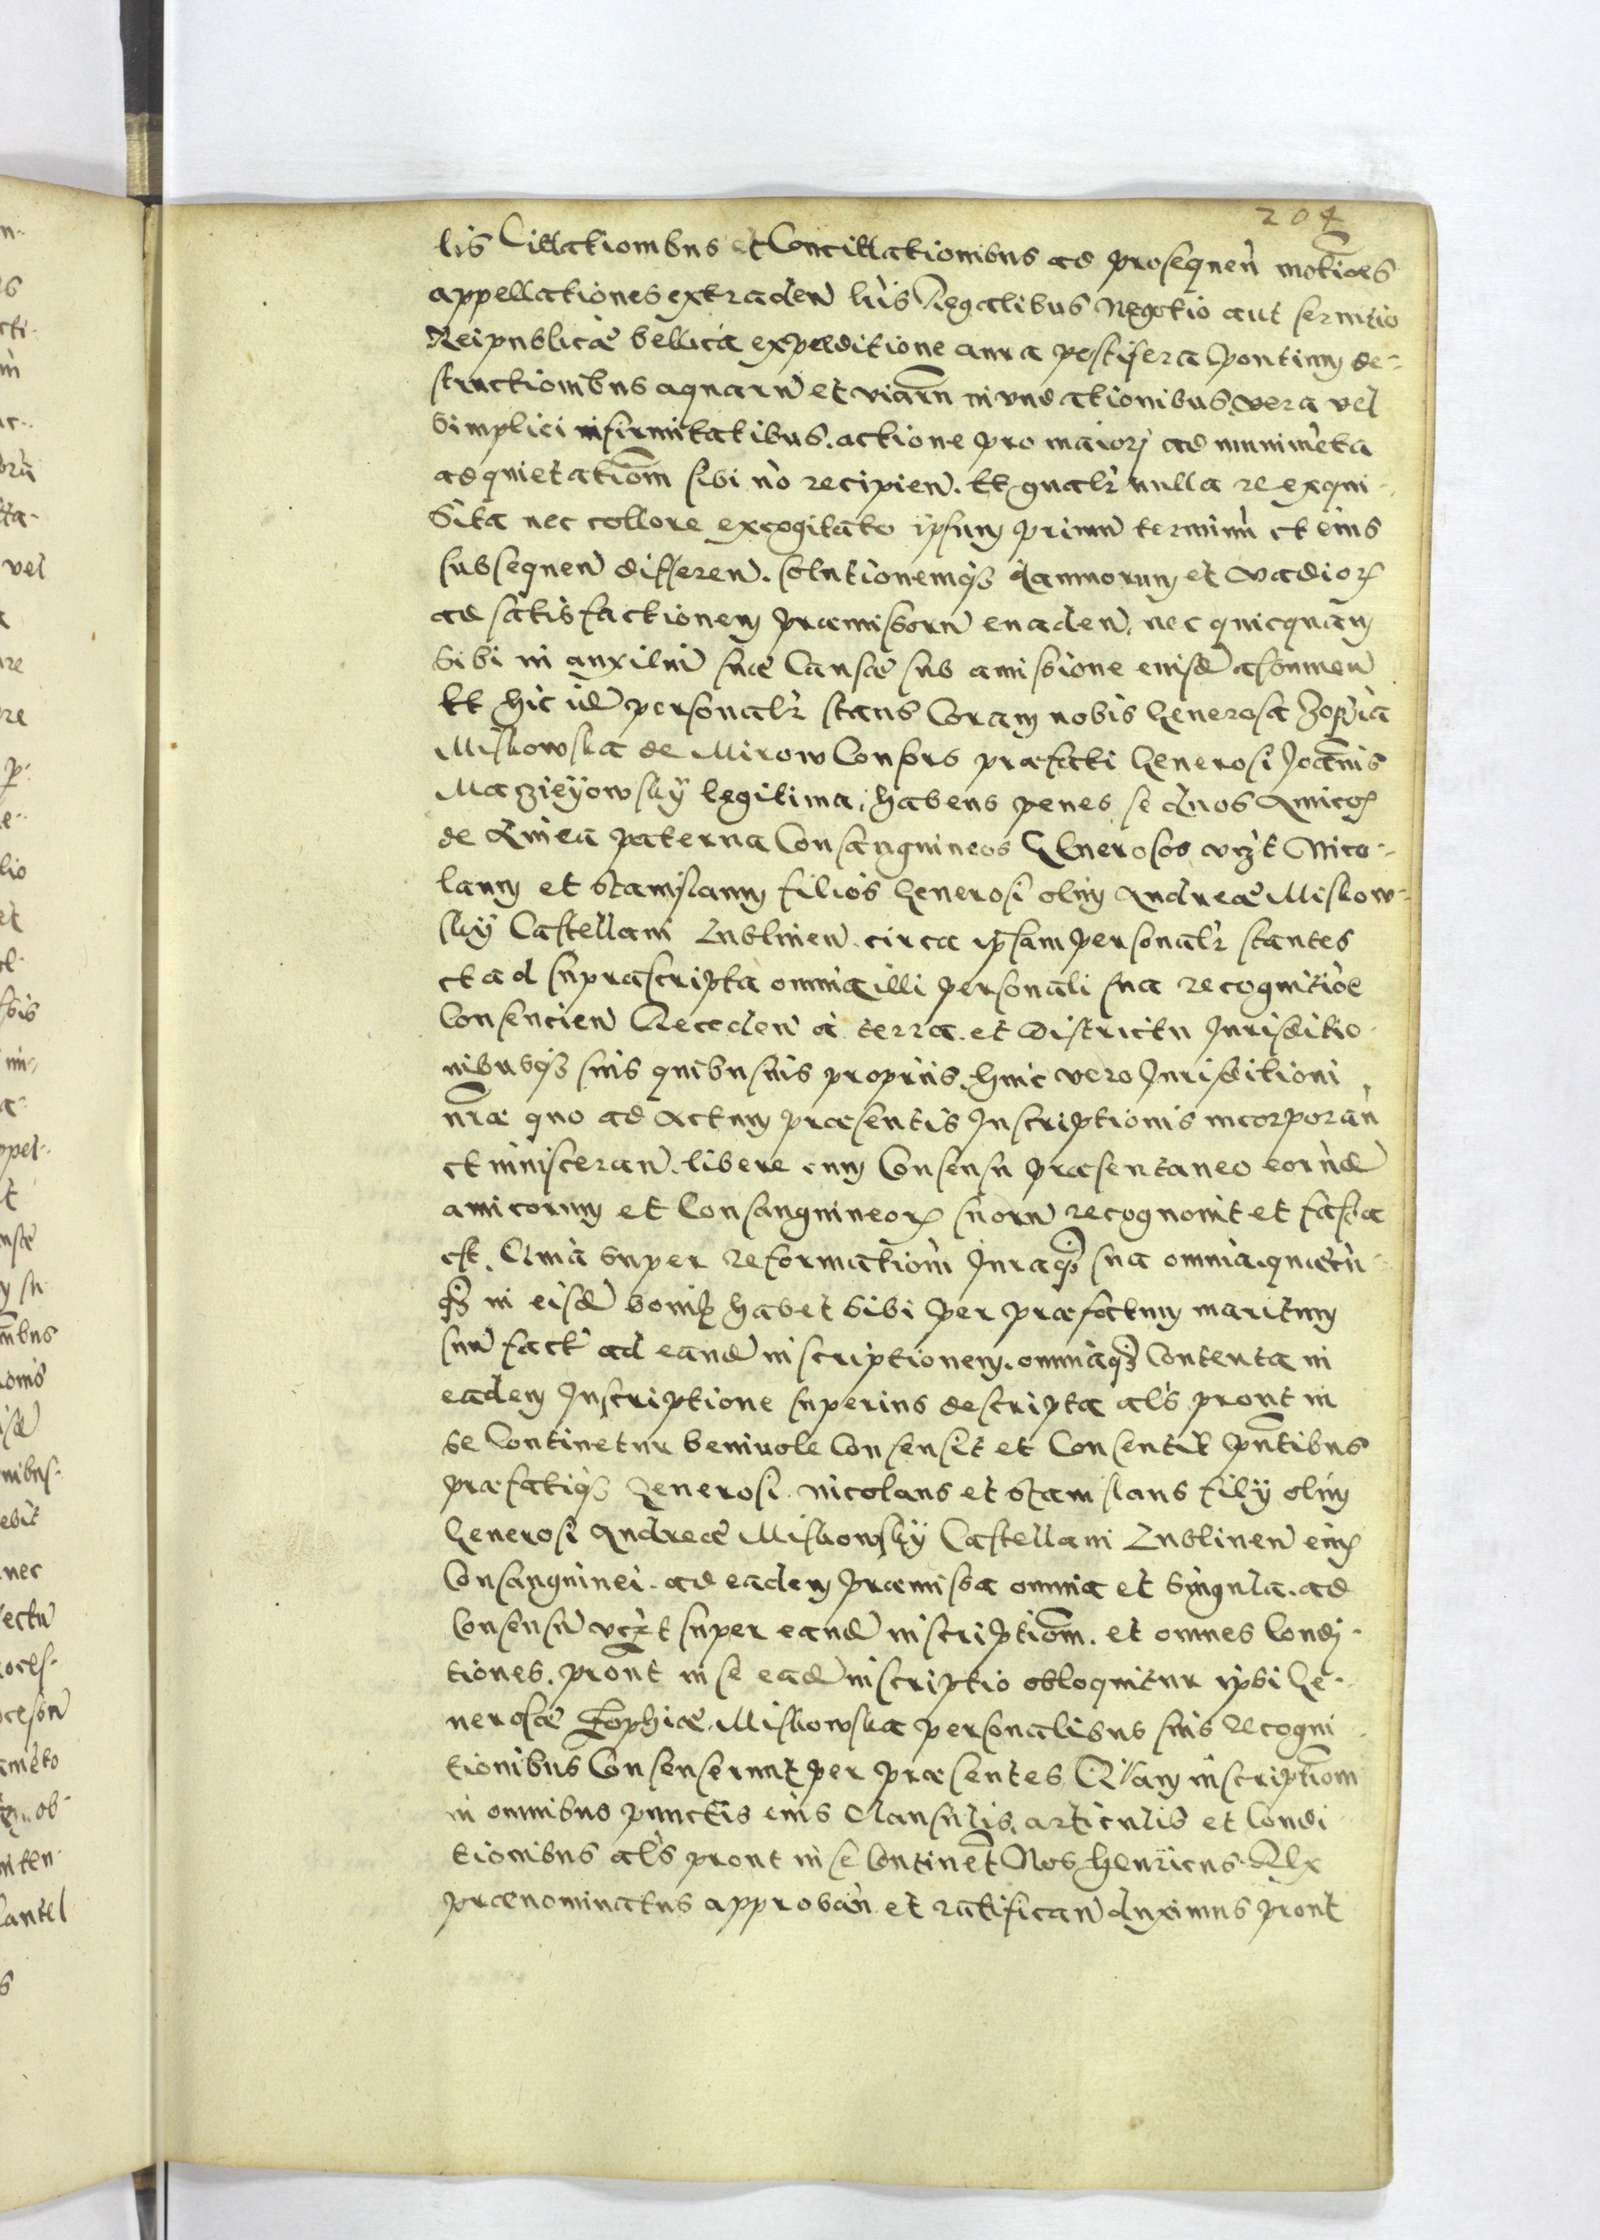 204
lis Cittationibus et Concittationibus ad prosequen̄ motiōes
appellationes extraden̄ lr̄is Regalibus Negotio aut servitio
Reipublicæ bellica expeditione aura pestifera pontium de-
structionibus aquarū et viarū inundationibus, vera vel
simplici infirmitatibus, actione pro maiori ad munimēta
ad quietatiōm sibi nō recipien̄. Et gn̄alr̄ nulla re exqui-
sita nec collore excogitato ipsum primū terminū et eius
subsequen̄ differen̄. solutionemq̄ damnorum et vadior̄
ad satisfactionem præmissorū evaden̄, nec quicquam
sibi in auxiliū suæ Causæ sub amissione eiusd̄ assumen̄
Et hic id̄ personalr̄ stans Coram nobis Generosa Zophia
Miskowska de Mirow Consors præfati Generosi Joānis
Maczieyowsky legitima, habens penes se duos Amicos
de Linea paterna Consanguineos Generosos vcz̄t Nico-
laum et Stanislaum filios Generosi olim Andreæ Miskow-
sky Castellani Lublinen̄. circa ipsam personalr̄ stantes
et ad suprascripta omnia illi personali sua recognitiōe
Consencien̄ Receden̄ a terra et districtu Jurisditio-
nibusq̄ suis quibusuis propriis, huic vero Jurisditioni
nr̄æ quo ad Actum præsentis Inscriptionis incorporan̄
et inuisceran̄. libere cum Consensu præsentaneo eorūd̄
amicorum et Consanguineor̄ suorū recognovit et fassa
est. Quia super reformatiōm Juraq̄ sua omnia, quæcū-
q̄ in eisd̄ bonis habet sibi per præfatum maritum
suū fact̄ ad eand̄ inscriptionem, omniaq̄ Contenta in
eadem Inscriptione superius descripta als prout in
se Continetur benivole Consensit et Consentit pn̄tibus
præfatiq̄ Generosi Nicolaus et Stanislaus filii olim
Generosi Andreæ Miskowsky Castellani Lublinen̄ eius
Consanguinei. ad eadem præmissa omnia et singula, ad
Consensū vcz̄t super eand̄ inscriptiōm. et omnes Condi-
tiones. prout in se ead̄ inscriptio obloquitur ipsi Ge-
nerosæ Zophiæ Miskowska personalibus suis recogni-
tionibus Consenserunt per præsentes. Quam inscriptiōm
in omnibus punctis eius Clausulis, articulis et Condi-
tionibus als prout in se Continet Nos Henricus Rex
prænominatus approban̄ et ratifican̄ duximus prout